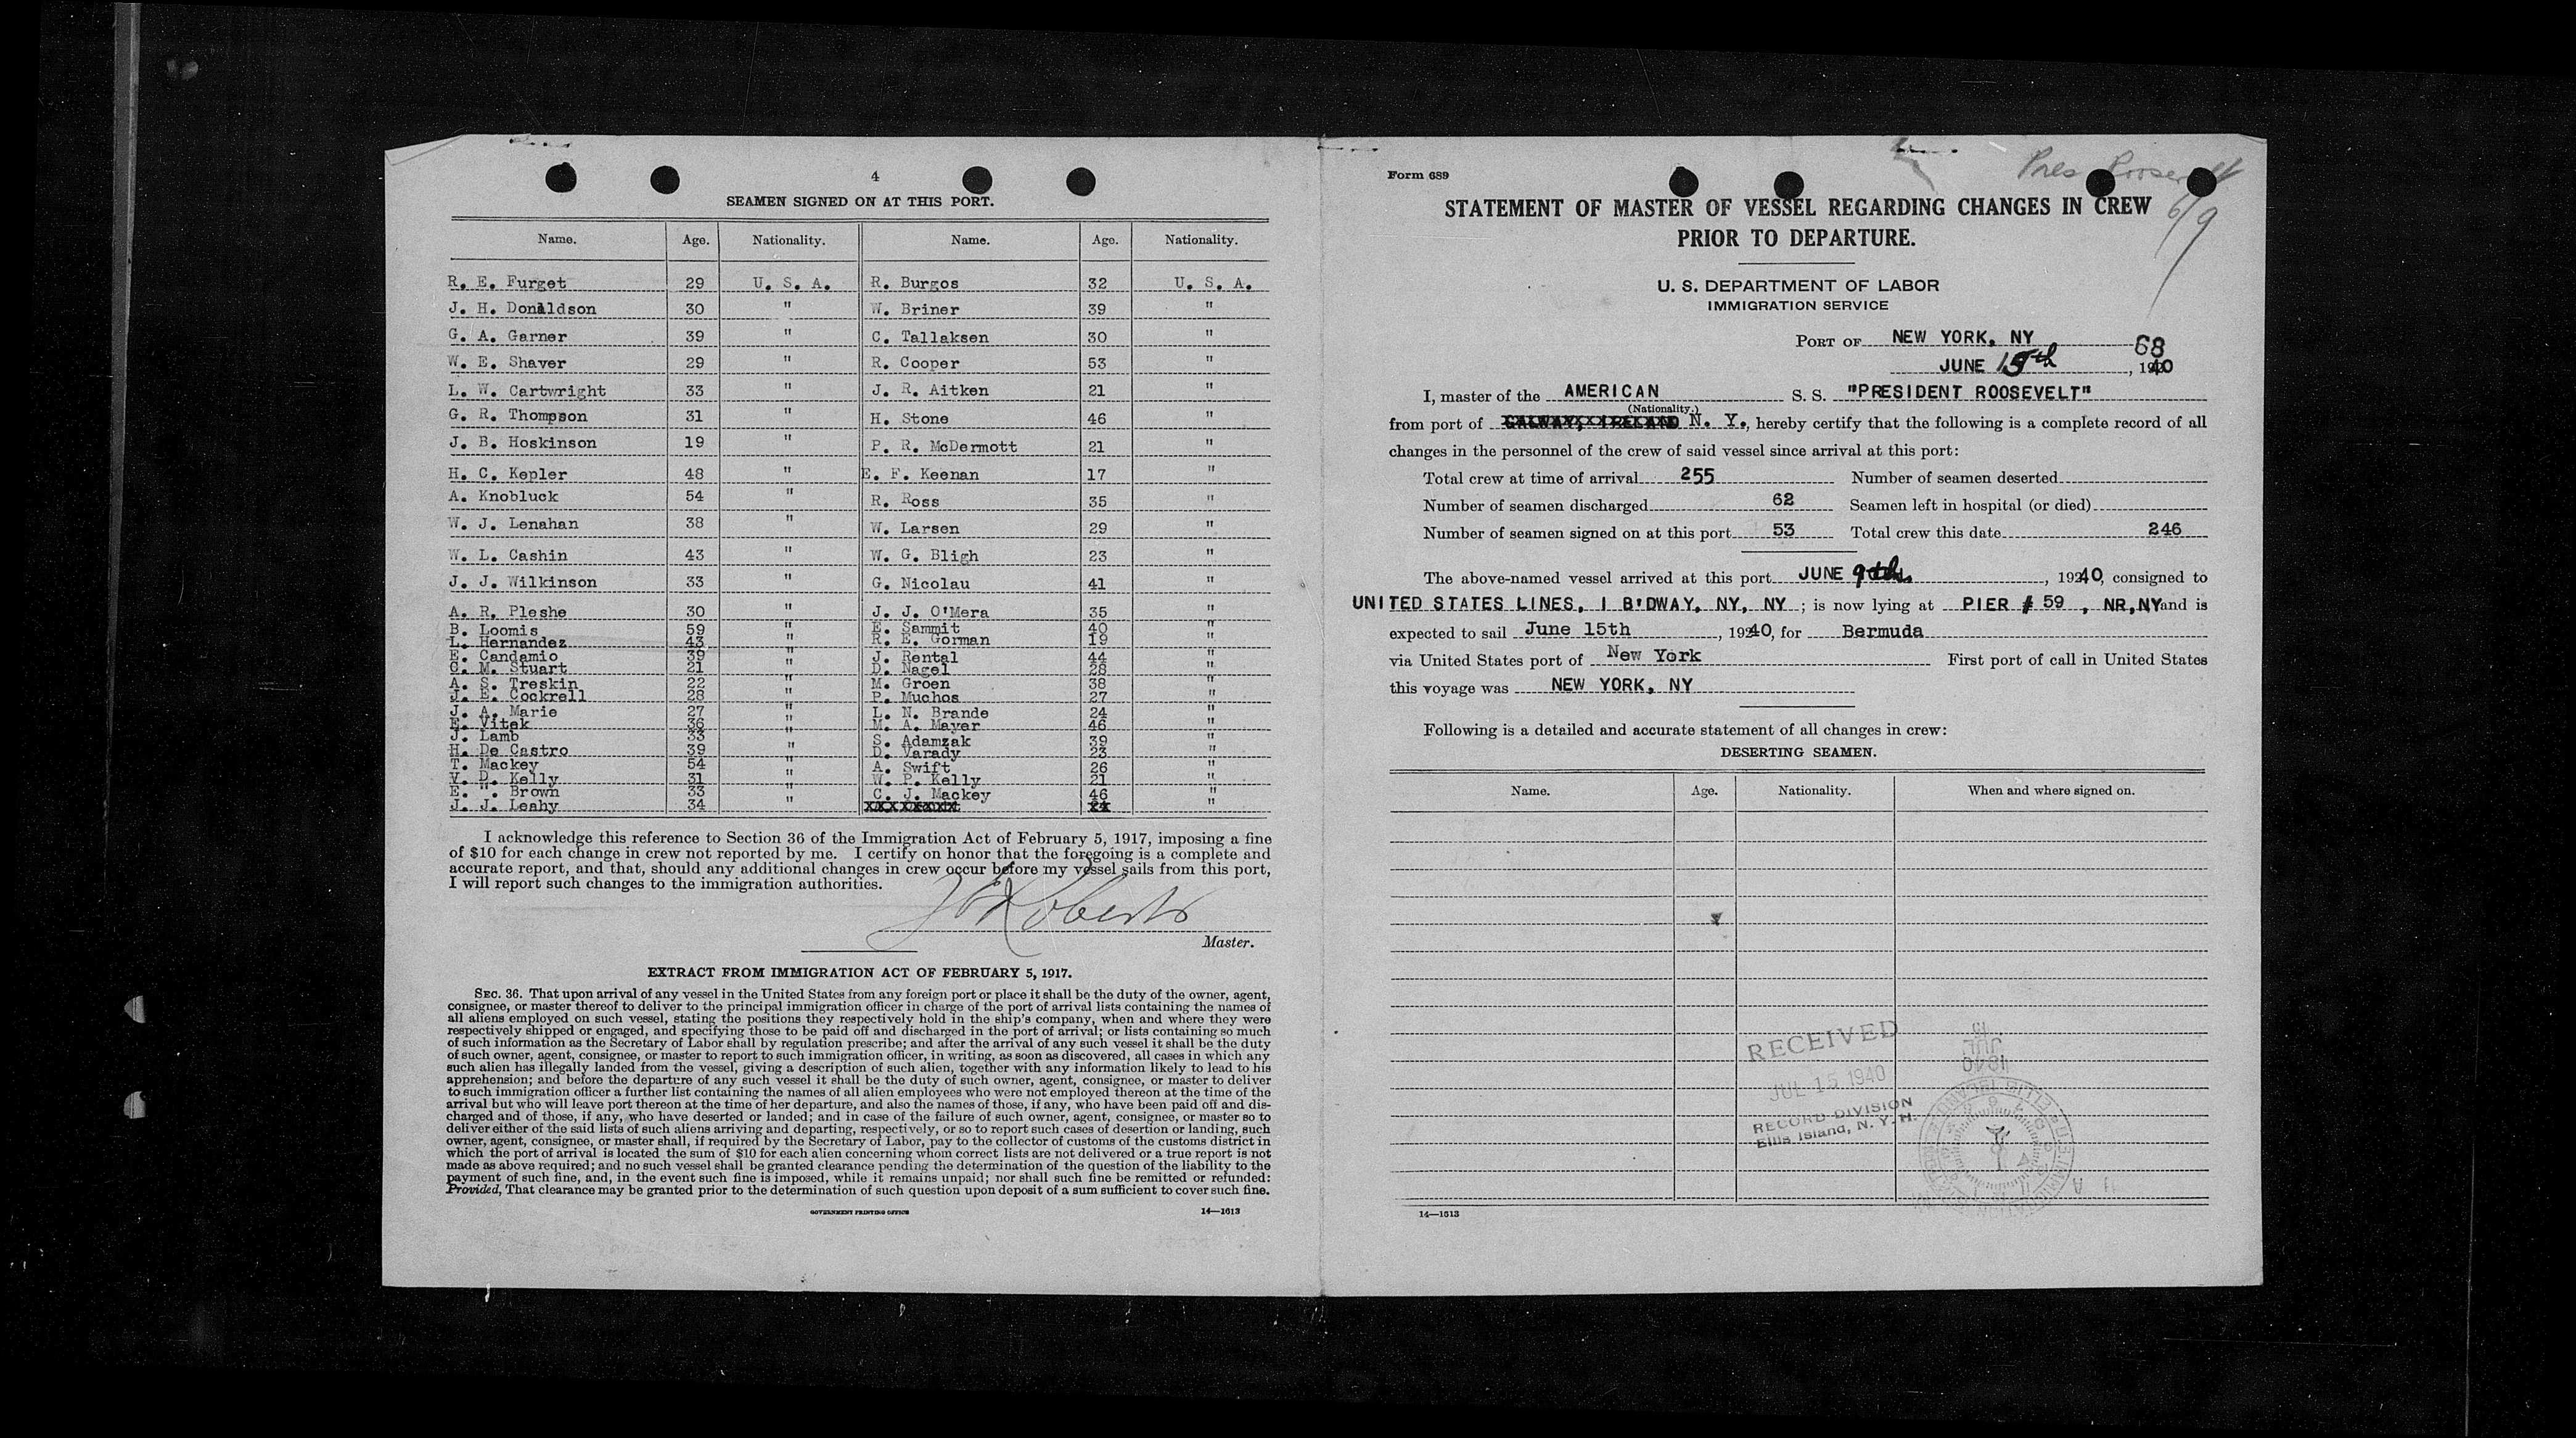 4
SEAMEN SIGNED ON AT THIS PORT.
Name. Age. Nationality. Name. Age. Nationality.
R. E. Furget 29 U. S. A. R. Burgos 32 U. S. A.
J. H. Donaldson 30 " W. Briner 39 "
G. A. Garner 39 " C. Tallaksen 30 "
W. E. Shaver 29 " R. Cooper 53 "
L. W. Cartwright 33 " J. R. Aitken 21 "
G. R. Thompson 31 " H. Stone 46 "
J. B. Hoskinson 19 " P. R. McDermott 21 "
H. C. Kepler 48 " E. F. Keenan 17 "
A. Knobluck 54 " R. Ross 35 "
W. J. Lenahan 38 " W. Larsen 29 "
W. L. Cashin 43 " W. G. Bligh 23 "
J. J. Wilkinson 33 " G. Nicolau 41 "
A. R. Pleshe 30 " J. J. O'Mera 35 "
B. Loomis 59 " E. Sammit 40 "
L. Hernandez 43 " R. E. Gorman 19 "
E. Candamio 39 " J. Rental 44 "
C. M. Stuart 21 " D. Nagel 28 "
A. S. Treskin 22 " M. Groen 38 "
J. E. Cockrell 28 " P. Muchos 27 "
J. A. Marie 27 " L. N. Brande 24 "
E. Vitek 36 " M. A. Mayer 46 "
J. Lamb 33 S. Adamzak 39 "
H. De Castro 39 " D. Varady 23 "
T. Mackey 54 " A. Swift 26 "
V. D. Kelly 31 " W. P. Kelly 21 "
E. ". Brown 33 " C. J. Mackey 46 "
J. J. Leahy 34 " "
I acknowledge this reference to Section 36 of the Immigration Act of February 5, 1917, imposing a fine
of $10 for each change in crew not reported by me. I certify on honor that the foregoing is a complete and
accurate report, and that, should any additional changes in crew occur before my vessel sails from this port,
I will report such changes to the immigration authorities.
Roberts
Master.
EXTRACT FROM IMMIGRATION ACT OF FEBRUARY 5, 1917.
SEC. 36. That upon arrival of any vessel in the United States from any foreign port or place it shall be the duty of the owner, agent,
consignee, or master thereof to deliver to the principal immigration officer in charge of the port of arrival lists containing the names of
all aliens employed on such vessel, stating the positions they respectively hold in the ship's company, when and where they were
respectively shipped or engaged, and specifying those to be paid off and discharged in the port of arrival; or lists containing so much
of such information as the Secretary of Labor shall by regulation prescribe; and after the arrival of any such vessel it shall be the duty
of such owner, agent, consignee, or master to report to such immigration officer, in writing, as soon as discovered, all cases in which any
such alien has illegally landed from the vessel, giving a description of such alien, together with any information likely to lead to his
apprehension; and before the departure of any such vessel it shall be the duty of such owner, agent, consignee, or master to deliver
to such immigration officer a further list containing the names of all alien employees who were not employed thereon at the time of the
arrival but who will leave port thereon at the time of her departure, and also the names of those, if any, who have been paid off and dis-
charged and of those, if any, who have deserted or landed; and in case of the failure of such owner, agent, consignee, or master so to
deliver either of the said lists of such aliens arriving and departing, respectively, or so to report such cases of desertion or landing, such
owner, agent, consignee, or master shall, if required by the Secretary of Labor, pay to the collector of customs of the customs district in
which the port of arrival is located the sum of $10 for each alien concerning whom correct lists are not delivered or a true report is not
made as above required; and no such vessel shall be granted clearance pending the determination of the question of the liability to the
payment of such fine, and, in the event such fine is imposed, while it remains unpaid; nor shall such fine be remitted or refunded:
Provided, That clearance may be granted prior to the determination of such question upon deposit of a sum sufficient to cover such fine.
GOVERNMENT PRINTING OFFICE 14—1613
Form 689
Pres Roosevelt
6/9
STATEMENT OF MASTER OF VESSEL REGARDING CHANGES IN CREW
PRIOR TO DEPARTURE.
U. S. DEPARTMENT OF LABOR
IMMIGRATION SERVICE
PORT OF NEW YORK, NY 68
JUNE 15th, 1940
I, master of the AMERICAN S. S. "PRESIDENT ROOSEVELT"
(Nationality.)
from port of GALWAY, IRELAND N. Y., hereby certify that the following is a complete record of all
changes in the personnel of the crew of said vessel since arrival at this port:
Total crew at time of arrival 255 Number of seamen deserted
Number of seamen discharged 62 Seamen left in hospital (or died)
Number of seamen signed on at this port 53 Total crew this date 246
The above-named vessel arrived at this port JUNE 9th, 1940, consigned to
UNITED STATES LINES, 1 B'DWAY, NY, NY ; is now lying at PIER # 59, NR, NY and is
expected to sail June 15th, 1940, for Bermuda
via United States port of New York First port of call in United States
this voyage was NEW YORK, NY
Following is a detailed and accurate statement of all changes in crew:
DESERTING SEAMEN.
Name. Age. Nationality. When and where signed on.
RECEIVED
JUL 15 1940
RECORD DIVISION
Ellis Island, N. Y. H.
15
JUL
1940
14—1513